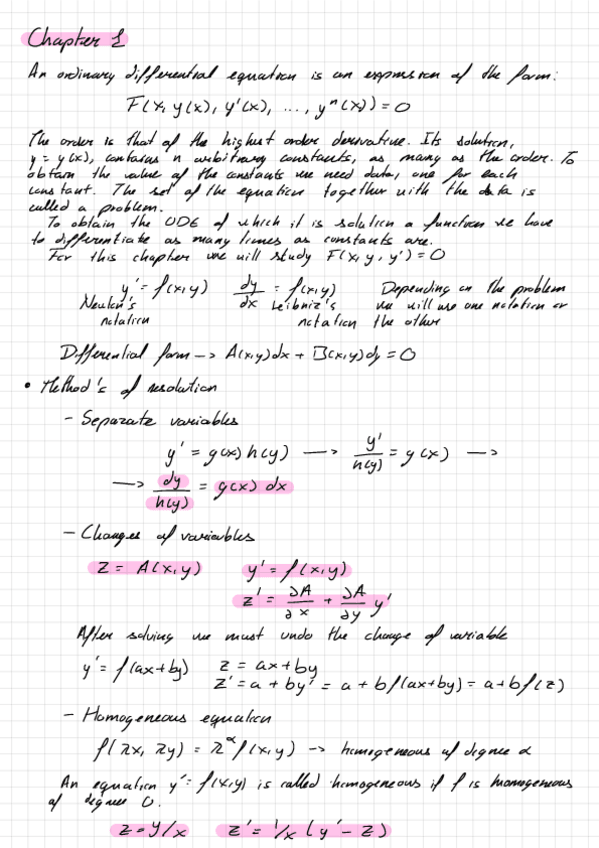 Chapter 1
An ordinary differential equation is an expression of the form:
F(x, y(x), y'(x), ..., yⁿ(x)) = 0
The order is that of the highest order derivative. Its solution,
y = y(x), contains n arbitrary constants, as many as the order. To
obtain the value of the constants we need data, one for each
constant. The set of the equation together with the data is
called a problem.
To obtain the ODE of which it is solution a function we have
to differentiate as many times as constants are.
For this chapter we will study F(x, y, y') = 0
y' = f(x,y) dy/dx = f(x,y) Depending on the problem
Newton's Leibniz's we will use one notation or
notation notation the other
Differential form --> A(x,y)dx + B(x,y)dy = 0
• Method's of resolution
- Separate variables
y' = g(x) h(y) —> y'/h(y) = g(x) —>
—> dy/h(y) = g(x) dx
- Changes of variables
z = A(x,y) y' = f(x,y)
z' = ∂A/∂x + ∂A/∂y y'
After solving we must undo the change of variable
y' = f(ax+by) z = ax+by
z' = a + by' = a + bf(ax+by) = a+bf(z)
- Homogeneous equation
f(λx, λy) = λ^α f(x,y) -> homogeneous of degree α
An equation y' = f(x,y) is called homogeneous if f is homogeneous
of degree 0.
z = y/x z' = 1/x (y' - z)